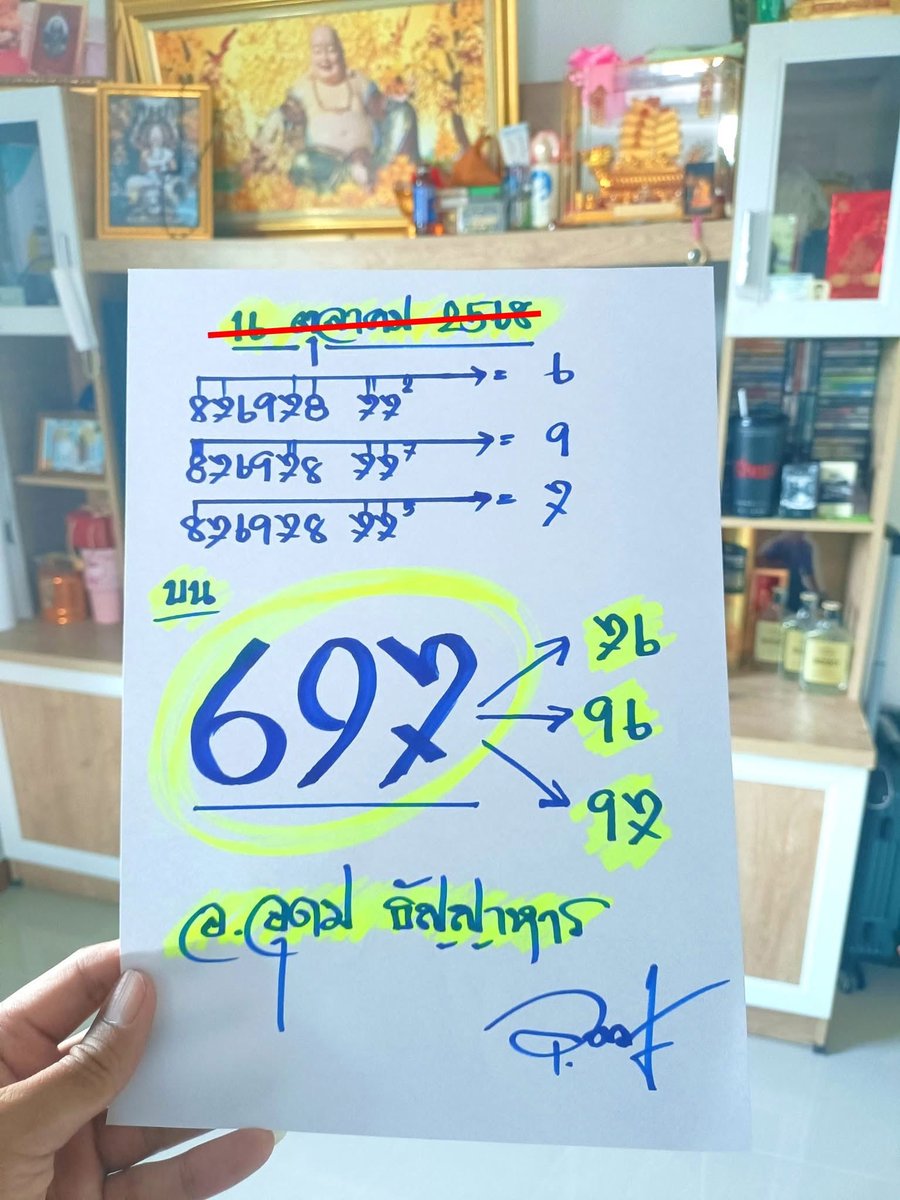 16 ตุลาคม 2568
876978 77² = 6
876978 77⁷ = 9
876978 77⁵ = 7
บน
697
76
96
97
อ.อุดม ธัญญาหาร